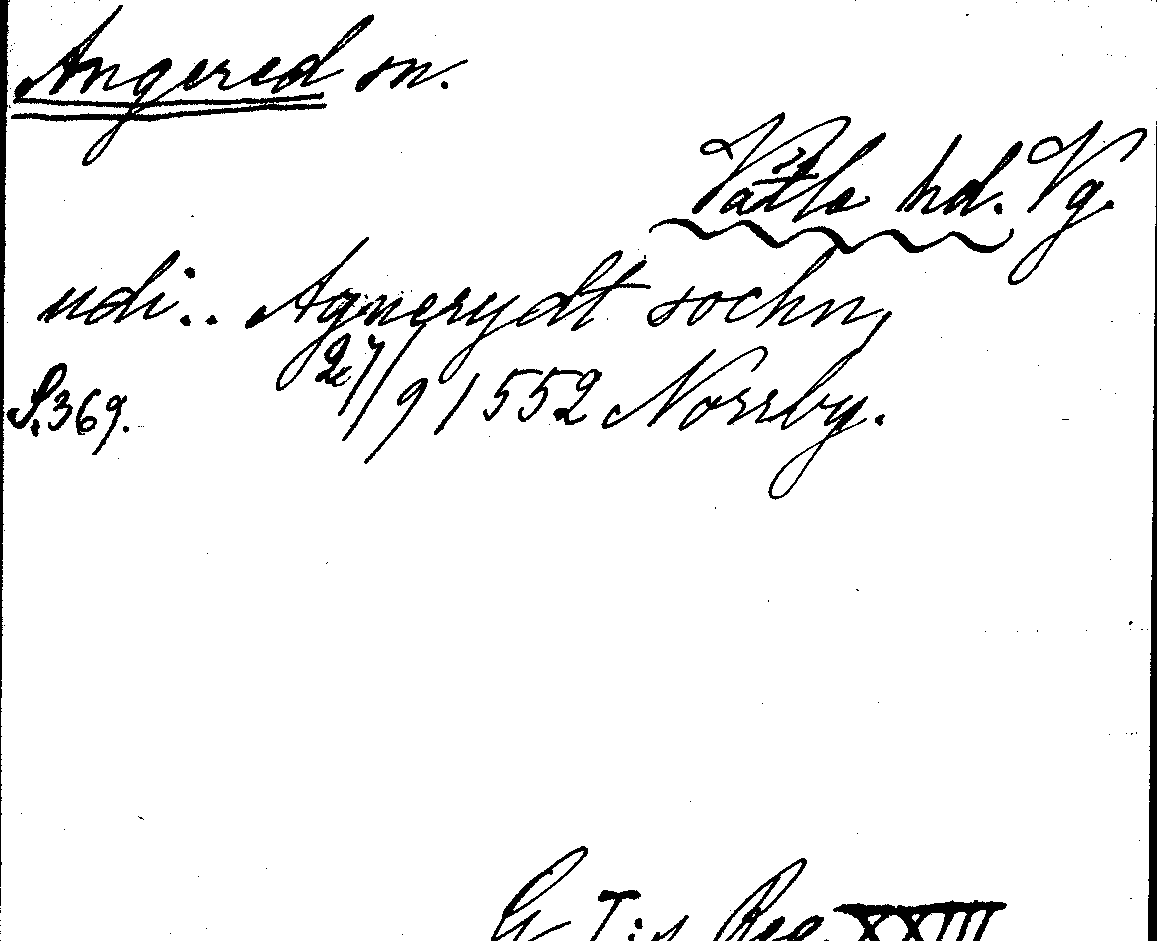 Angered sn.
Vättle hd. Vg.
udi.. Agnerydt sochn,
S. 369. 27/9 1552 Norrby.
G. I:s Reg. XXIII